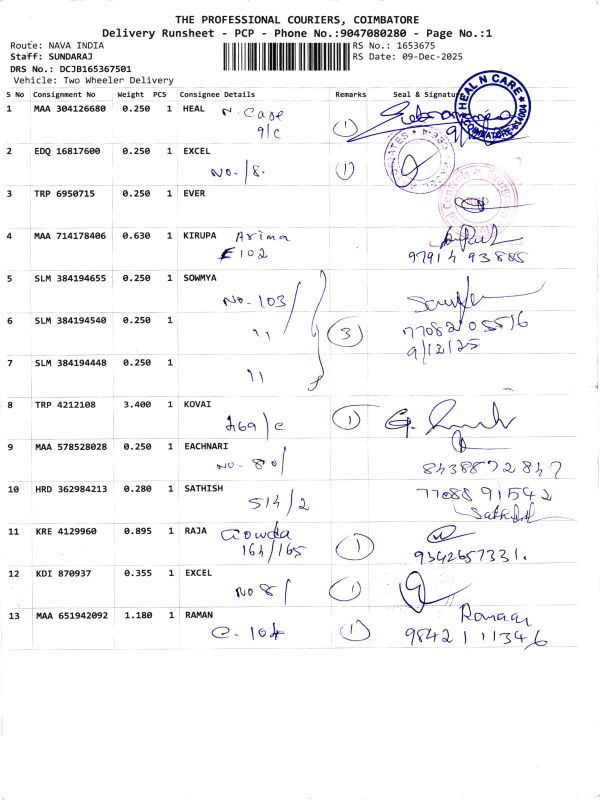 THE PROFESSIONAL COURIERS, COIMBATORE
Delivery Runsheet - PCP - Phone No.:9047080280 - Page No.:1
Route: NAVA INDIA
RS No.: 1653675
Staff: SUNDARAJ
RS Date: 09-Dec-2025
DRS No.: DCJB165367501
Vehicle: Two Wheeler Delivery
S No Consignment No Weight PCS Consignee Details Remarks Seal & Signature
HEAL N CARE
COIMBATORE-641004
1 MAA 304126680 0.250 1 HEAL N. Care
9/c
1
2 EDQ 16817600 0.250 1 EXCEL
No. 18.
1
3 TRP 6950715 0.250 1 EVER
4 MAA 714178406 0.630 1 KIRUPA Arima
E 102
97914 93885
5 SLM 384194655 0.250 1 SOWMYA
No. 103
6 SLM 384194540 0.250 1
11
3
77082 05516
9/12/25
7 SLM 384194448 0.250 1
11
8 TRP 4212108 3.400 1 KOVAI
269/c
1
9 MAA 578528028 0.250 1 EACHNARI
No. 80/
8438872847
10 HRD 362984213 0.280 1 SATHISH
514/2
7708891542
11 KRE 4129960 0.895 1 RAJA Gowda
164/165
1
9342657331.
12 KDI 870937 0.355 1 EXCEL
No 8/
1
13 MAA 651942092 1.180 1 RAMAN
C. 104
1
Raman
98421 11346